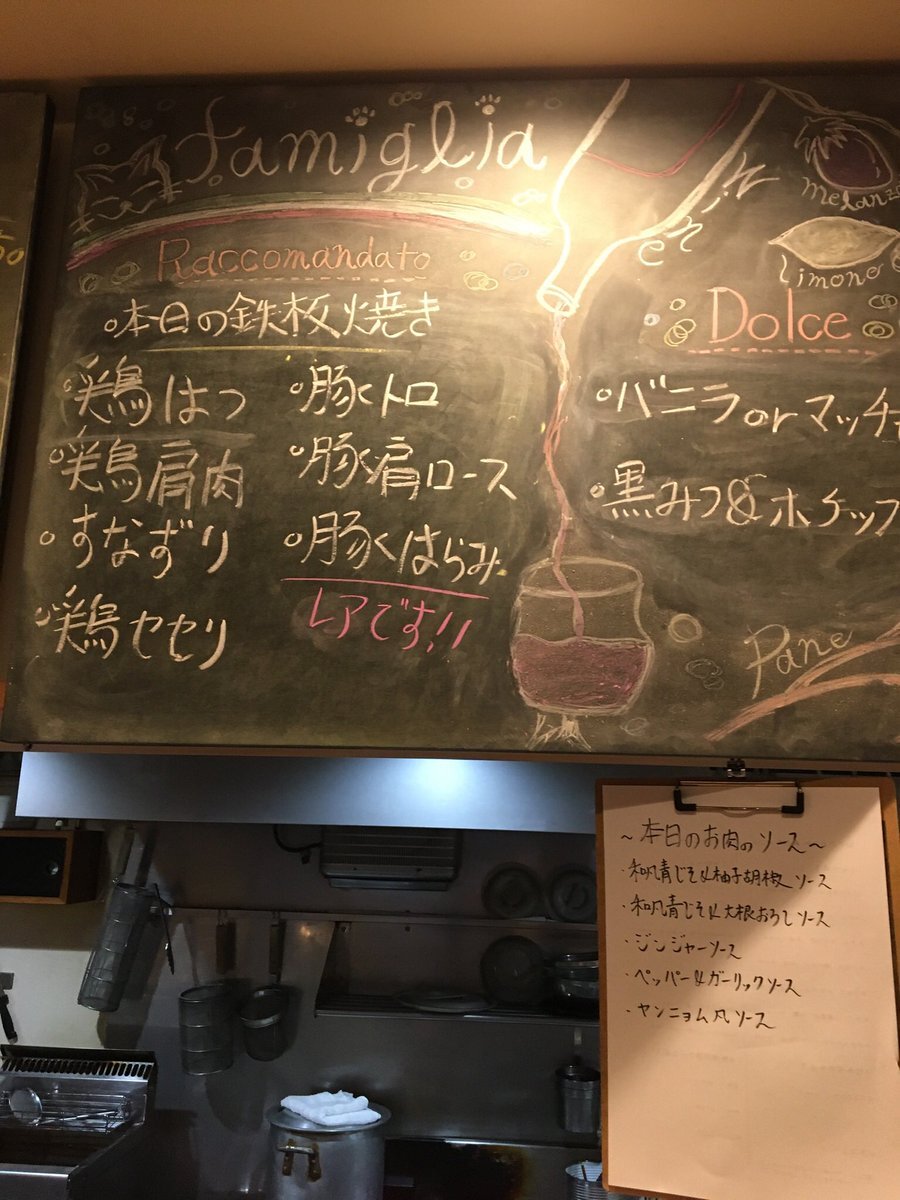 famiglia
Raccomandato
本日の鉄板焼き
鶏はつ
鶏肩肉
すなずり
鶏セセリ
豚トロ
豚肩ロース
豚はらみ
レアです!!
melanz
limone
Dolce
バニラorマッチ
黒みつ&ホケップ
Pane
~本日のお肉のソース~
・和風青じそ&柚子胡椒ソース
・和風青じそ&大根おろしソース
・ジンジャーソース
・ペッパー&ガーリックソース
・ヤンニョム風ソース